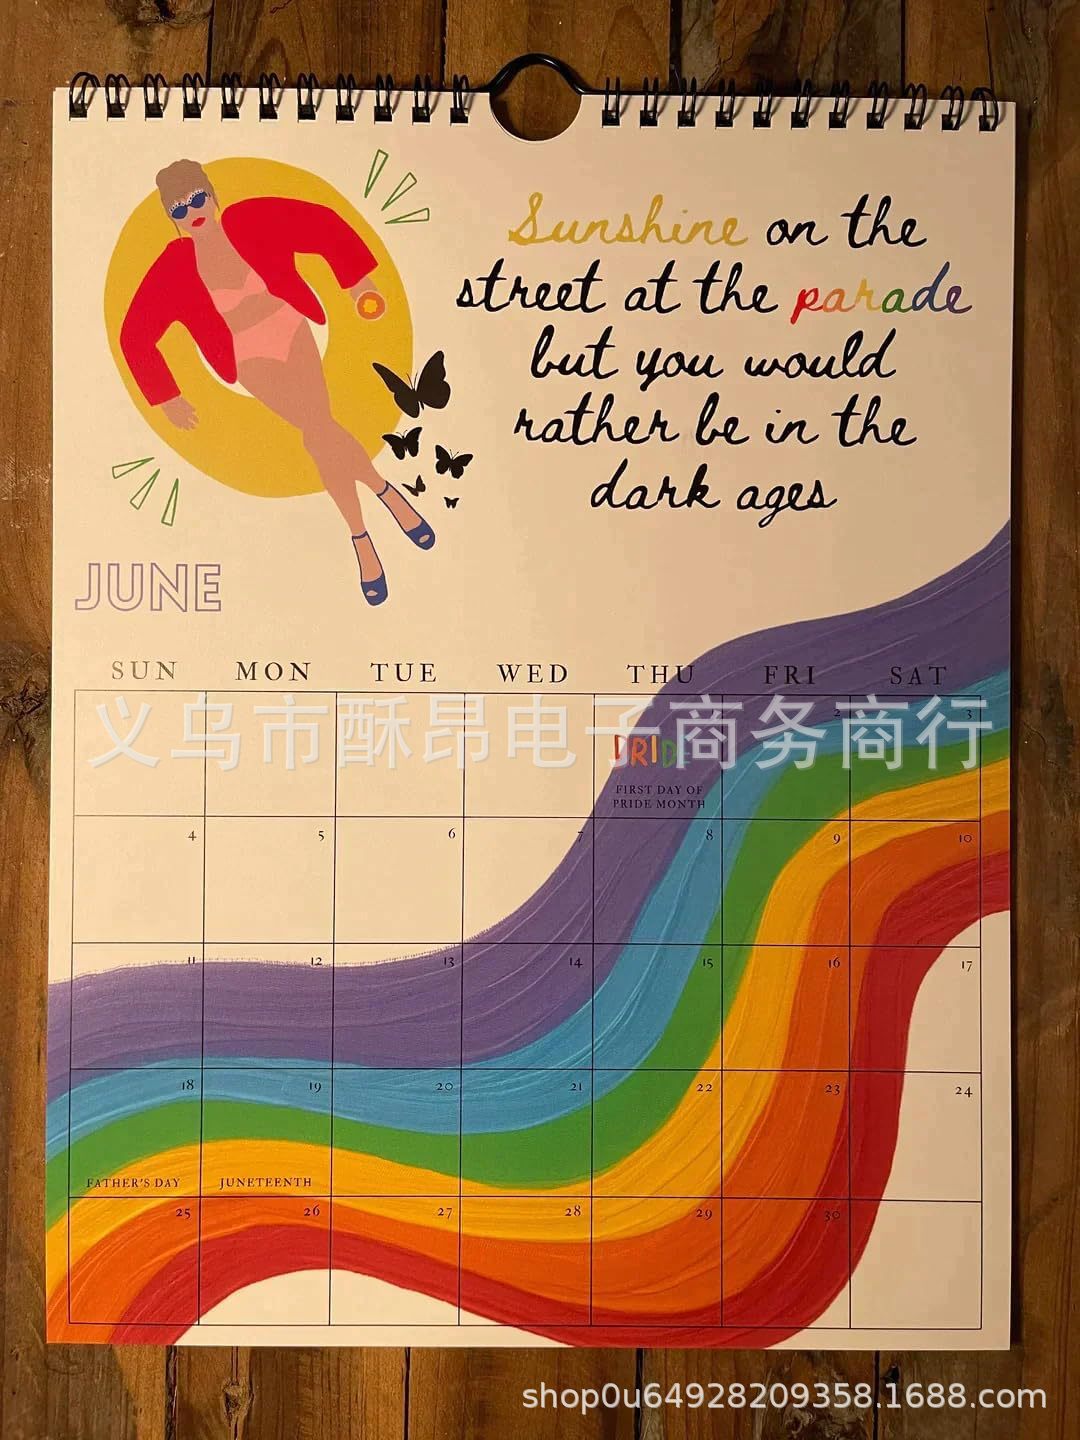 Sunshine on the
street at the parade
but you would
rather be in the
dark ages
JUNE
SUN MON TUE WED THU FRI SAT
义乌市酥昂电子商务商行
2 3
PRIDE
FIRST DAY OF
PRIDE MONTH
4 5 6 7 8 9 10
11 12 13 14 15 16 17
18 19 20 21 22 23 24
FATHER'S DAY JUNETEENTH
25 26 27 28 29 30
shop0u64928209358.1688.com